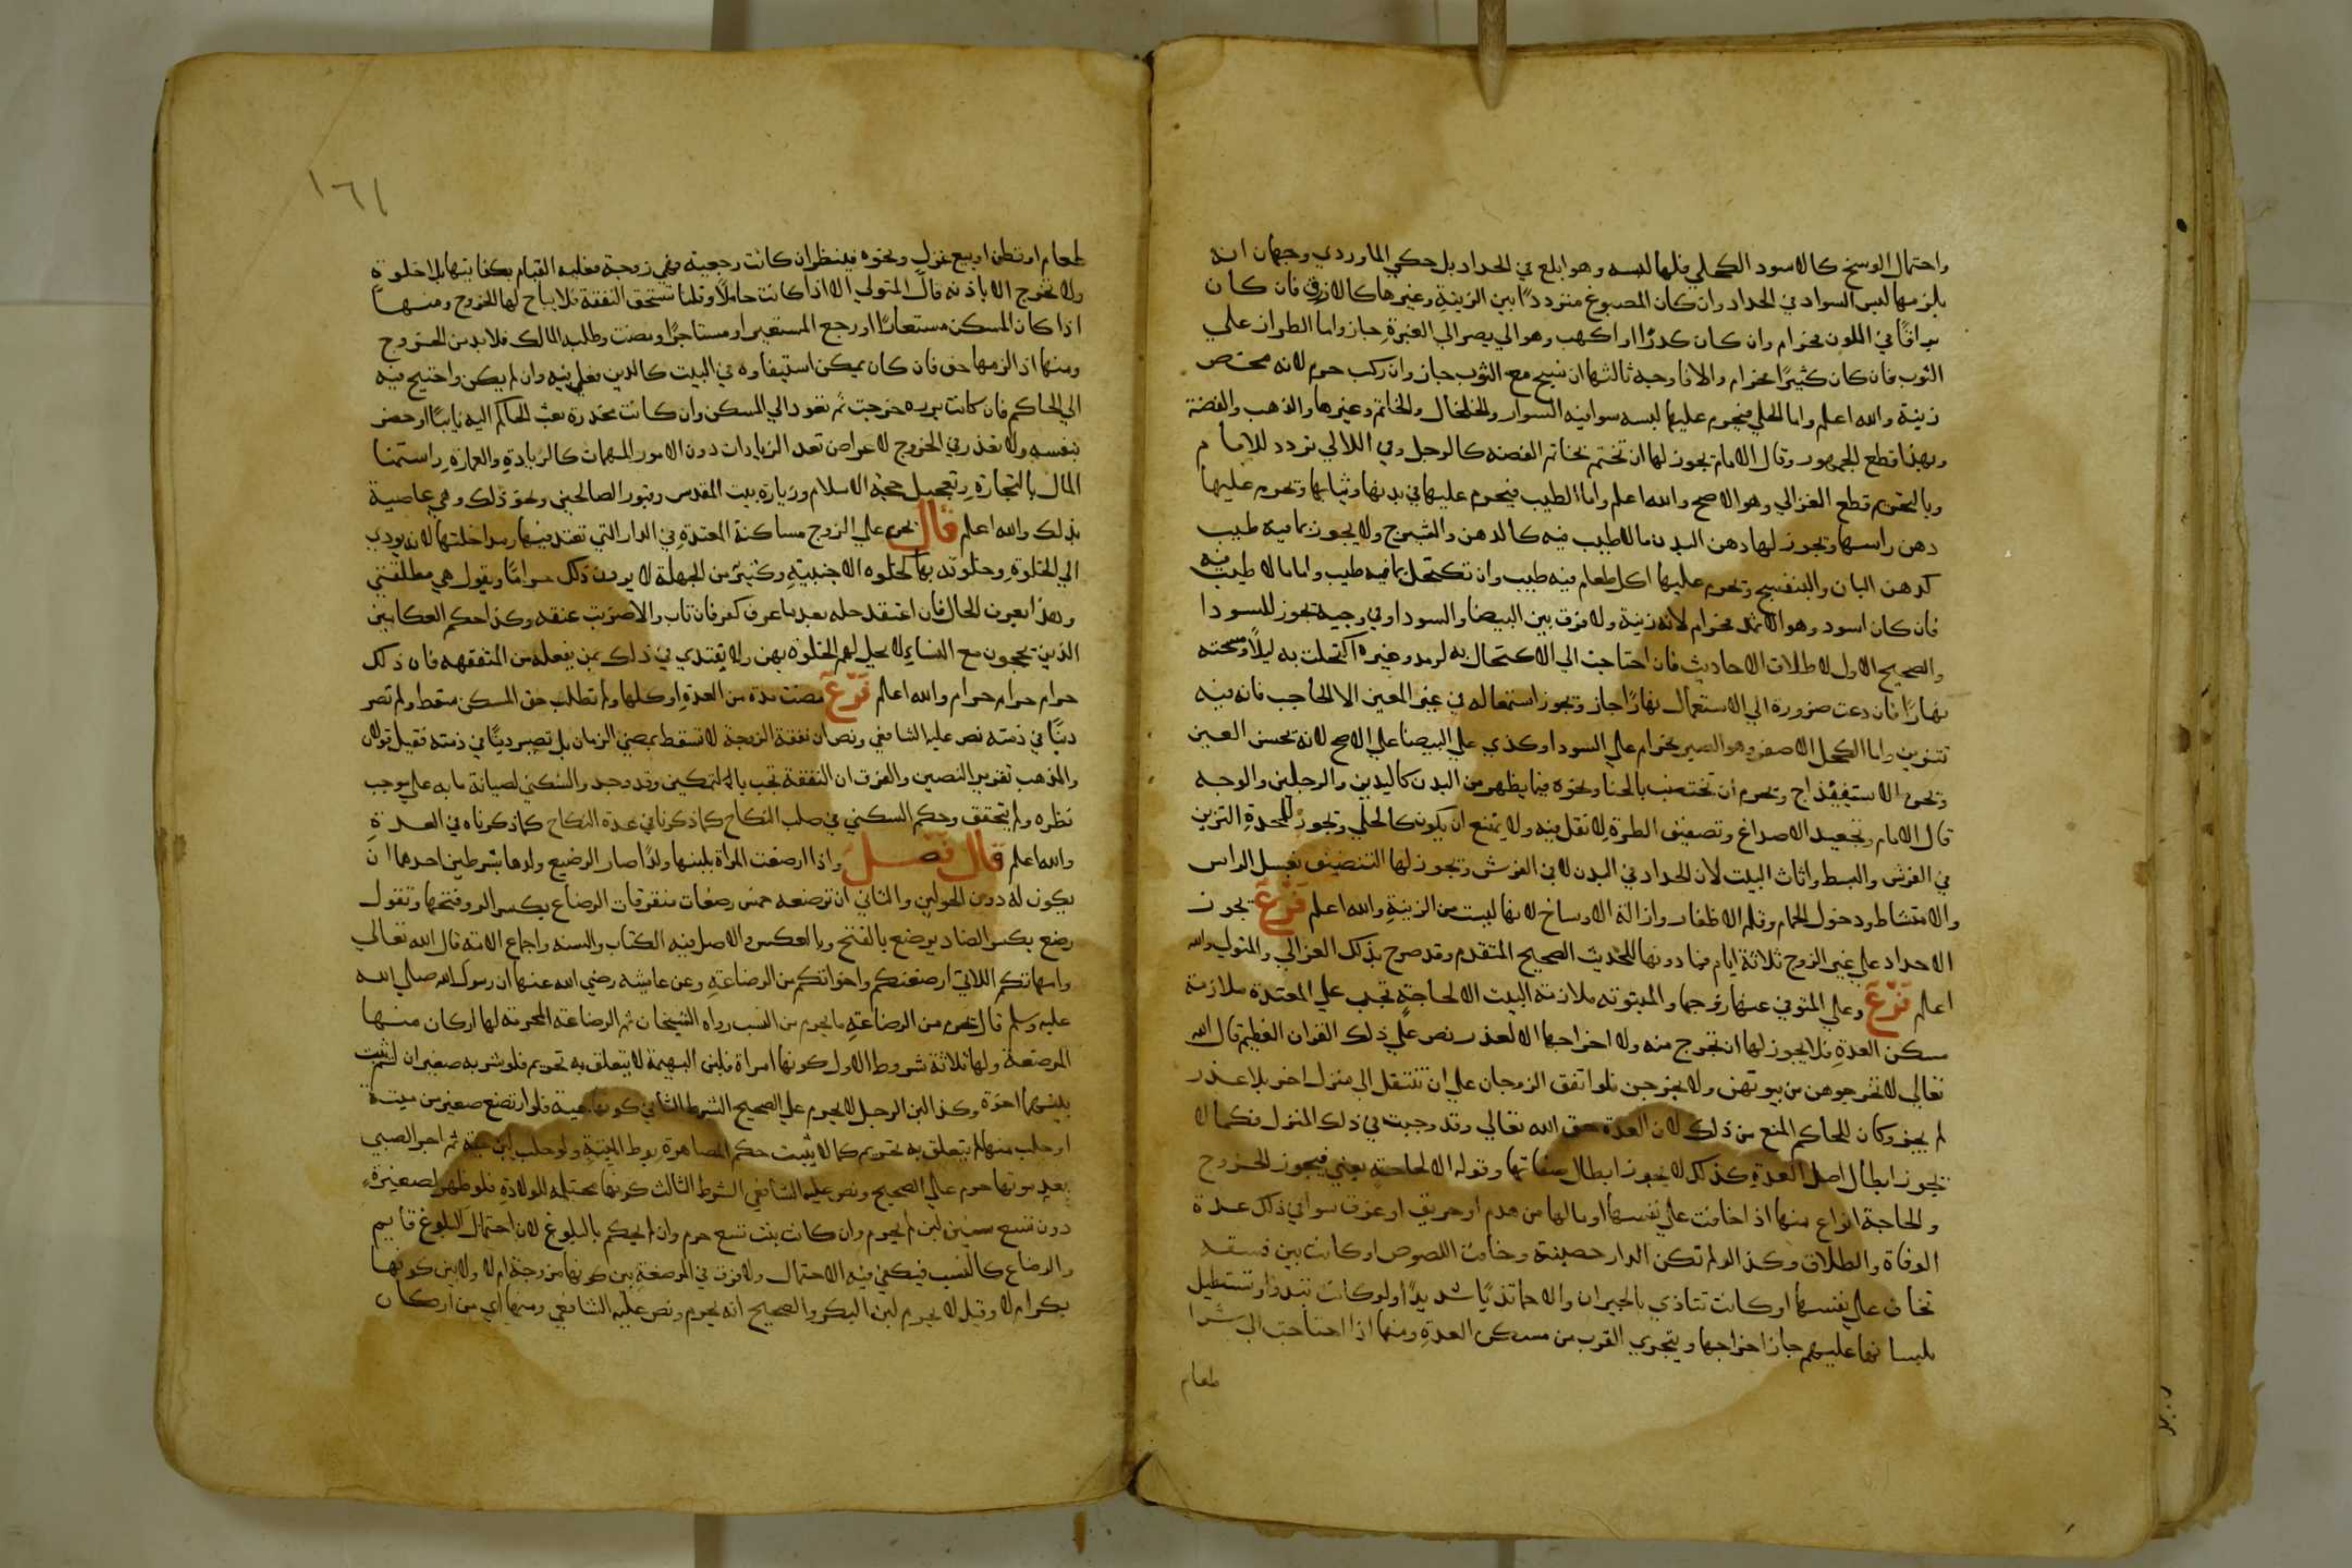 واحتمال الوسخ كالاسود الكحلي فلها لبسه وهو ابلغ في الحداد بل حكي الماوردي وجهان انه
يلزمها لبس السواد في الحداد وان كان المصبوغ مترددًا بين الزينة وغيرها كالازرق فان كان
براقًا في اللون فحرام وان كان كدرًا او اكهب وهو الي يصر الي الغبرة جاز واما الطراز علي
الثوب فان كان كثيرًا فحرام والا فاوجه ثالثها ان نسج مع الثوب جاز وان ركب حرم لانه محض
زينة والله اعلم واما الحلي فيحرم عليها لبسه سوا فيه السوار والخلخال والخاتم وغيرها والذهب والفضة
وبهذا قطع الجمهور وقال الامام يجوز لها ان تختم بخاتم الفضة كالرجل وفي اللالي تردد للامام
وبالتحريم قطع الغزالي وهو الاصح والله اعلم واما الطيب فيحرم عليها في بدنها وثيابها وتحرم عليها
دهن راسها وتجوز لها دهن البدن مالاطيب فيه كالدهن والشيرج ولا يجوز بما فيه طيب
كدهن البان والبنفسج وتحرم عليها اكل طعام فيه طيب وان تكتحل بما فيه طيب واما ما لا طيب فيه
فان كان اسود وهو الاثمد فحرام لانه زينة ولا فرق بين البيضا والسودا وفي وجيه تجوز للسودا
والصحيح الاول لاطلاق الاحاديث فان احتاجت الي الاكتحال به لرمد وغيره اكتحلت به ليلًا ومسحته
نهارًا فان دعت ضرورة الي الاستعمال نهارًا جاز وتجوز استعماله في غير العين الا الحاجب فانه فيه
تتزين واما الكحل الاصفر وهو الصبر فحرام علي السودا وكذي علي البيضا علي الاصح لانه تحسن العين
وتحرم الاستيفيذاج وتحرم ان تختضب بالحنا ونحوه فيما يظهر من البدن كاليدين والرجلين والوجه
قال الامام وتجعيد الاصداغ وتصفيف الطرة لا نقل فيه ولا يمتنع ان يكون كالحلي وتجوز للمحدة التزين
في الفرش والبسط واثاث البيت لان الحداد في البدن لا في الفرش وتجوز لها التنضيف بغسل الراس
والامتشاط ودخول الحمام وقلم الاظفار وازالة الاوساخ لانها ليست من الزينة والله اعلم فرع يجوز
الاحداد علي غير الزوج ثلاثة ايام فما دونها للحديث الصحيح المتقدم وقد صرح بذلك الغزالي والمتولي والله
اعلم فرع وعلي المتوفي عنها زوجها والمبتوته ملازمة البيت الا لحاجة تجب علي المعتدة ملازمة
مسكن العدة فلا يجوز لها ان تخرج منه ولا اخراجها الا لعذر نص علي ذلك القران العظيم قال الله
تعالي لا تخرجوهن من بيوتهن ولا يخرجن فلو اتفق الزوجان علي ان تنتقل الي منزل اخر بلا عذر
لم يجز وكان للحاكم المنع من ذلك لان العدة حق الله تعالي وقد وجبت في ذلك المنزل فكما لا
يجوز ابطال اصل العدة كذلك لا يجوز ابطال صفاتها وقوله الا لحاجة يعني فيجوز الخروج
والحاجة انواع منها اذا خافت علي نفسها او مالها من هدم او حريق او غرق سوا في ذلك عدة
الوفاة والطلاق وكذا لو لم تكن الدار حصينة وخافت اللصوص او كانت بين فسقه
تخاف علي نفسها او كانت تتاذي بالجيران والاحما تاذيًا شديدًا او لو كانت تبدوا وتستطيل
بلسانها عليهم جاز اخراجها ويتحري القرب من مسكن العدة ومنها اذا احتاجت الي شرا
طعام
١٦١
طعام او قطن او بيع غزل ونحوه فينظر ان كانت رجعية فهي زوجة فعليه القيام بكفايتها بلا خلوة
ولا تخرج الا باذنه قال المتولي الا اذا كانت حاملًا وقلنا تستحق النفقة فلا يباح لها الخروج ومنها
اذا كان المسكن مستعارًا او رجع المستعير او مستاجرًا ومضت وطلبه المالك فلا بد من الخروج
ومنها اذ الزمها حق فان كان يمكن استيفاوه في البيت كالدين فعل فيه وان لم يكن واحتيج فيه
الي الحاكم فان كانت برزه خرجت ثم تعود الي المسكن وان كانت مخدرة بعث الحاكم اليه نايبًا او حضر
بنفسه ولا تعذر في الخروج لاغراض تعد الزيادات دون الامور المهمات كالزيادة والعمارة واستنما
المال بالتجارة وتعجيل حجة الاسلام وزيارة بيت المقدس وقبور الصالحين ونحو ذلك وهي عاصية
بذلك والله اعلم قال يحرم علي الزوج مساكنة المعتدة في الدار التي تعتد فيها ومداخلتها لانه يودي
الي الخلوة وخلوته بها كخلوه الاجنبية وكثير من الجهلة لا يرون ذلك حرامًا ويقول هي مطلقتي
وهذا يعرف الحال فان اعتقد حله بعد ما عرف كفر فان تاب والا ضربت عنقه وكذا حكم العكابين
الذين يحجون مع النساء لا يحل لهم الخلوة بهن ولا يقتدي في ذلك بمن يفعله من المتفقهه فان ذلك
حرام حرام حرام والله اعلم فرع مضت مدة من العدة او كلها ولم تطلب حق المسكن سقط ولم تصر
دينًا في ذمته نص عليه الشافعي ونص ان نفقة الزوجة لا تسقط بمضي الزمان بل تصير دينًا في ذمته فقيل قولان
والمذهب تقرير النصين والفرق ان النفقة تجب بالتمكين وقد وجد والسكني لصيانة مابه علي موجب
نظره ولم يتحقق وحكم السكني في صلب النكاح كما ذكرنا في عدة النكاح كما ذكرناه في العدة
والله اعلم قال فصل واذا ارضعت المراة بلبنها ولدًا صار الرضيع ولدها بشرطين احدهما ان
يكون له دون الحولين والثاني ان ترضعه خمس رضعات متفرقات الرضاع بكسر الرا وفتحها وتقول
رضع بكسر الضاد يرضع بالفتح وبالعكس والاصل فيه الكتاب والسنه واجماع الامة قال الله تعالي
وامهاتكم اللاتي ارضعنكم واخواتكم من الرضاعة وعن عايشه رضي الله عنها ان رسول الله صلي الله
عليه وسلم قال يحرم من الرضاعة ما يحرم من النسب رواه الشيخان ثم الرضاعة المحرمة لها اركان منها
المرضعة ولها ثلاثة شروط الاول كونها امراة فلبن البهيمة لا يتعلق به تحريم فلو شربه صغيران لم يثبت
بينهما اخوة وكذا لبن الرجل لا يحرم علي الصحيح الشرط الثاني كونها حية فلو ارتضع صغير من ميتة
او حلب منها لم يتعلق به تحريم كما لا يثبت حكم المصاهرة بوط الميتة ولو حلب لبن حية ثم اجر الصبي
بعد موتها حرم علي الصحيح ونص عليه الشافعي الشرط الثالث كونها محتمله للولادة فلو ظهر لصغيرة
دون تسع سنين لبن لم يحرم وان كانت بنت تسع حرم وان لم يحكم بالبلوغ لان احتمال البلوغ قايم
والرضاع كالنسب فيكفي فيه الاحتمال ولا فرق في المرضعة بين كونها مزوجة ام لا ولا بين كونها
بكرا ام لا وقيل لا يحرم لبن البكر والصحيح انه يحرم ونص عليه الشافعي ومنها اي من اركان